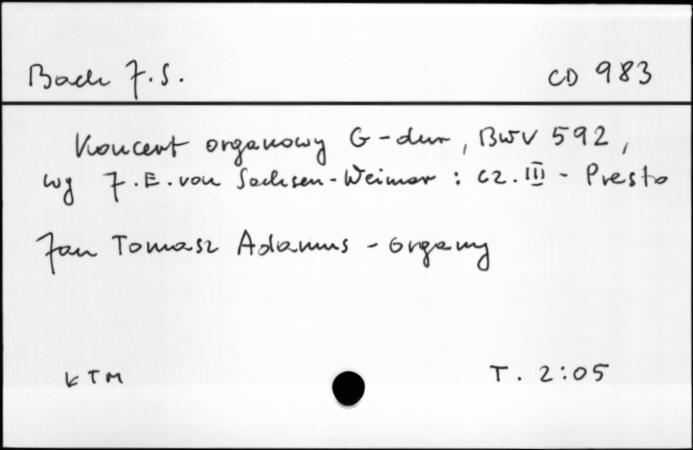 Bach J.S. CD 983
Koncert organowy G-dur, BWV 592,
wg J.E. von Sachsen-Weimar : cz. III - Presto
Jan Tomasz Adamus - organy
KTM T. 2:05